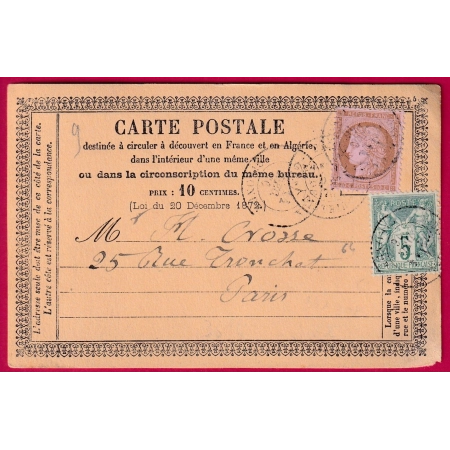 9
CARTE POSTALE
destinée à circuler à découvert en France et en Algérie,
dans l'intérieur d'une même ville
ou dans la circonscription du même bureau.
PRIX : 10 CENTIMES.
(Loi du 20 Décembre 1872.)
Mr H. Crosse
25 Rue Tronchet
Paris
L'adresse seule doit être mise de ce côté de la carte.
L'autre côté est réservé à la correspondance.
Lorsque la ca
d'une ville, indiq
rue et le numéro
5